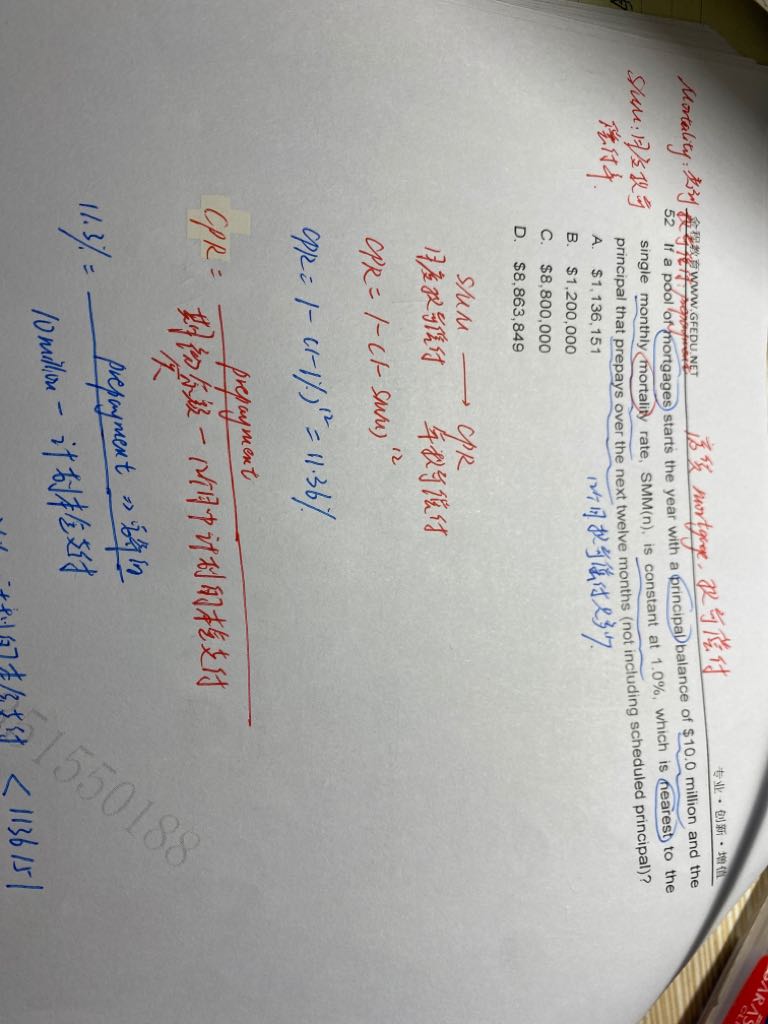 专业·创新·增值
金程教育WWW.GFEDU.NET
房贷 mortgage, 提前偿付
Mortality: 提前
SMM: 月度提前
偿付率.
52 If a pool of mortgages starts the year with a principal balance of $10.0 million and the
single monthly mortality rate, SMM(n), is constant at 1.0%, which is nearest to the
principal that prepays over the next twelve months (not including scheduled principal)?
A. $1,136,151
B. $1,200,000
C. $8,800,000
D. $8,863,849
12个月提前偿付多少
SMM → CPR
月度提前偿付 年提前偿付
CPR = 1-(1-SMM)^12
CPR = 1-(1-1%)^12 = 11.36%
CPR = prepayment
期初余额 - 12个月中计划的本金支付
11.3% = prepayment
10 million - 计划本金支付
计划的本金支付 < 1136151
51550188